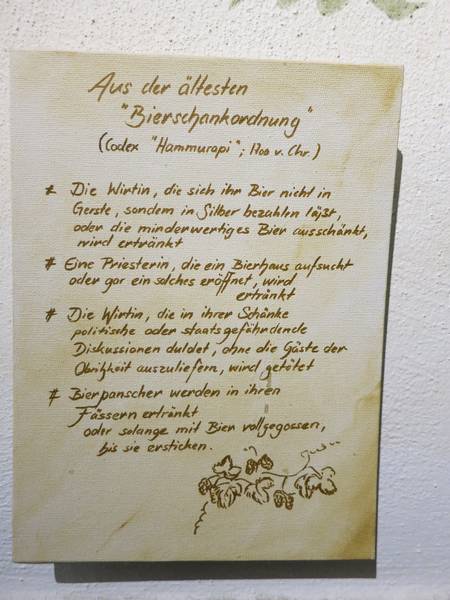 Aus der ältesten
"Bierschankordnung"
(Codex "Hammurapi"; 1700 v. Chr.)
* Die Wirtin, die sich ihr Bier nicht in
Gerste, sondern in Silber bezahlen läßt,
oder die minderwertiges Bier ausschänkt,
wird ertränkt
* Eine Priesterin, die ein Bierhaus aufsucht
oder gar ein solches eröffnet, wird
ertränkt
* Die Wirtin, die in ihrer Schänke
politische oder staatsgefährdende
Diskussionen duldet, ohne die Gäste der
Obrigkeit auszuliefern, wird getötet
* Bierpanscher werden in ihren
Fässern ertränkt
oder solange mit Bier vollgegossen,
bis sie ersticken.